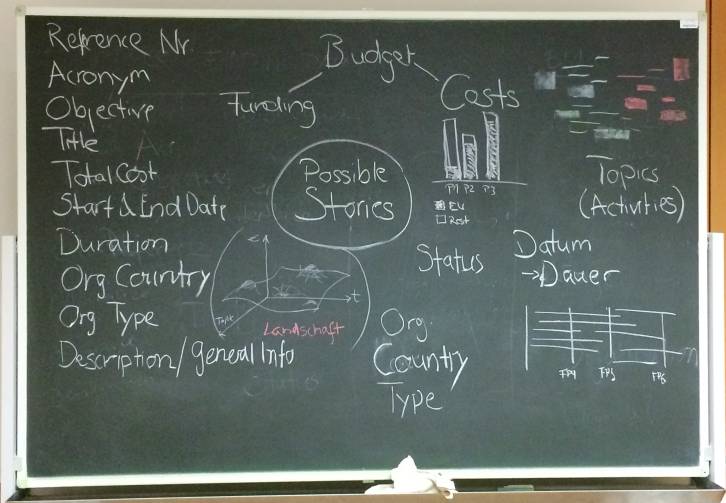 Reference Nr
Acronym
Objective
Title
Total Cost
Start & End Date
Duration
Org Country
Org Type
Description/general Info
Budget
Funding
Costs
P1 P2 P3
EU
Rest
Possible
Stories
€
t
Topic
Landschaft
Status
Org.
Country
Type
Topics
(Activities)
Datum
→Dauer
FP4 FP5 FP6